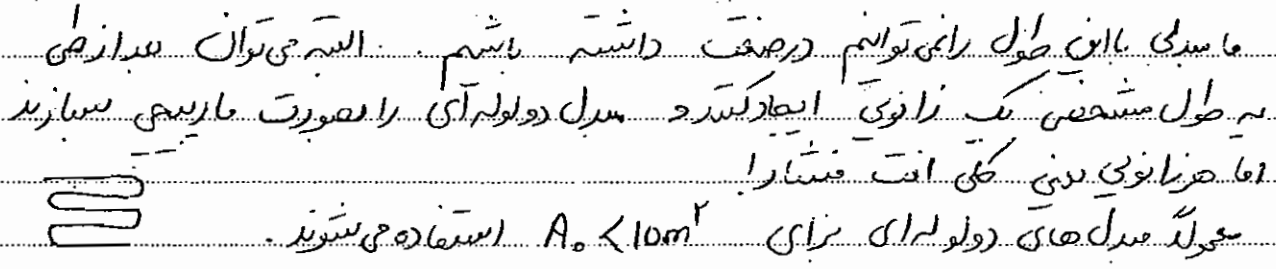 ما مبدلی با این طول را نمی توانیم در صنعت داشته باشیم . البته می توان بعد از طی
یه طول مشخص یک زانویی ایجاد کنند و مبدل دولوله ای را بصورت مارپیچی بسازند
اما هر زانویی یعنی کلی افت فشار!
معمولاً مبدل های دولوله ای برای A₀ < 10m² استفاده می شوند .